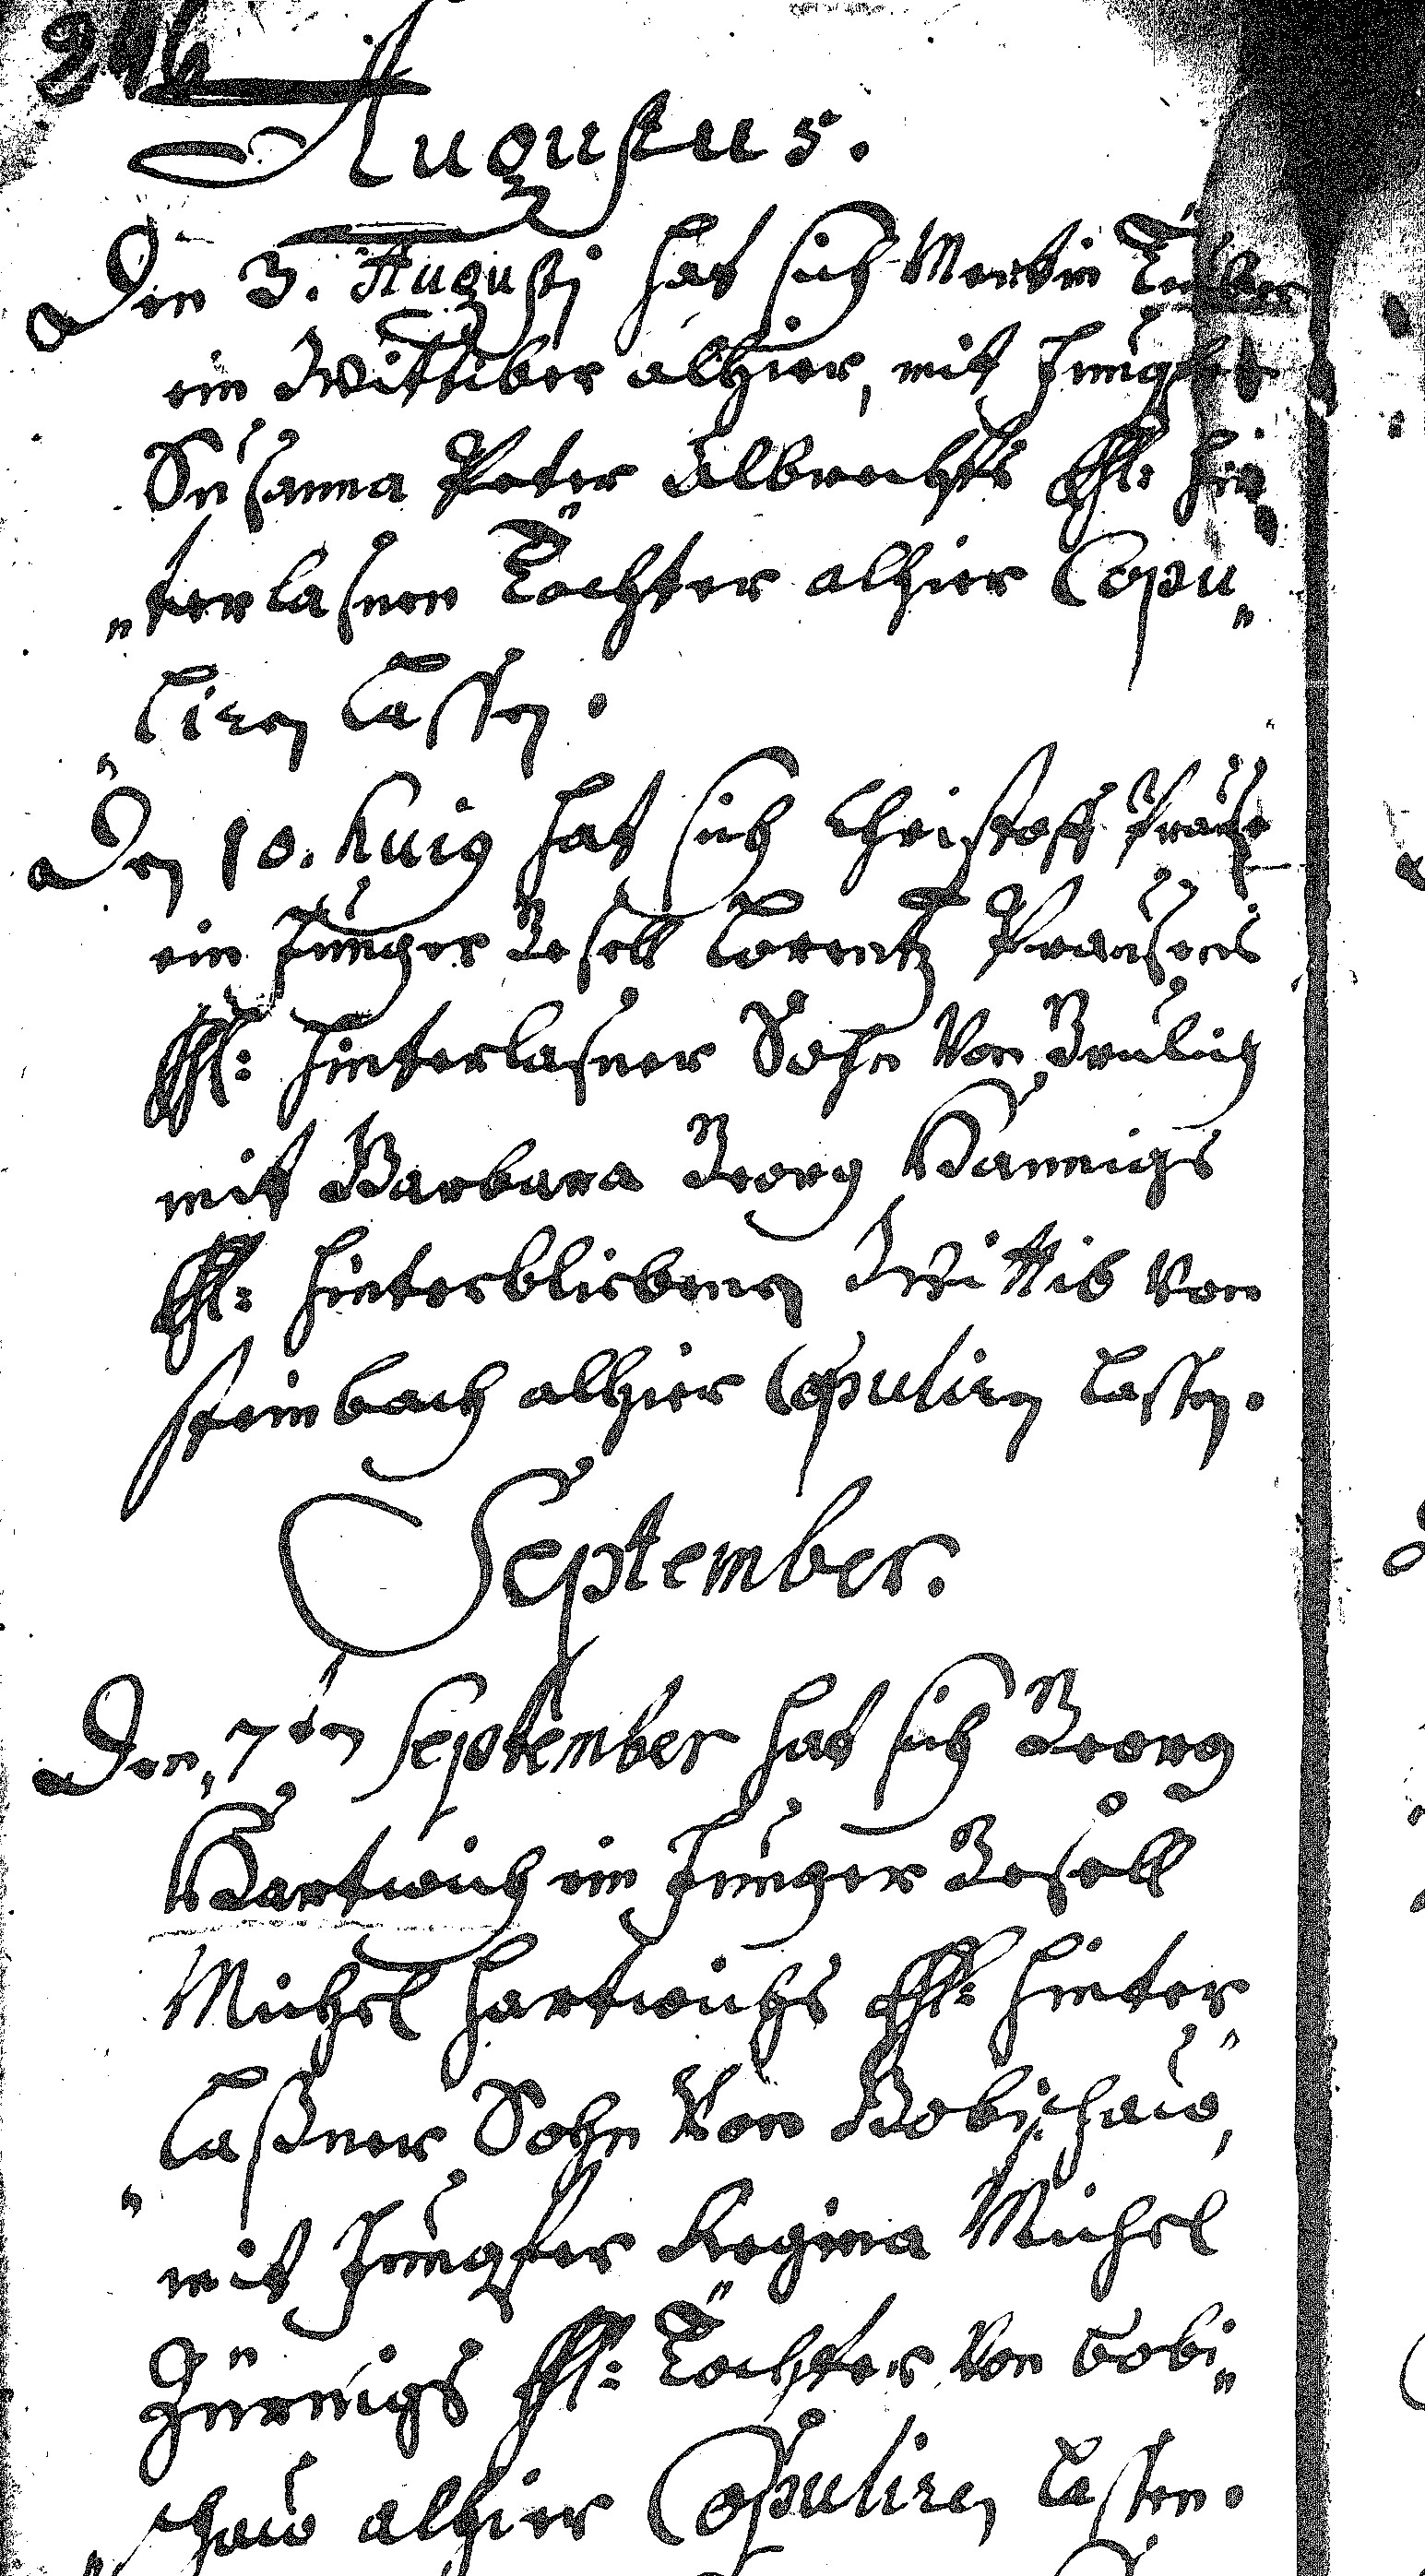 246
Augustus.
Den 3. Augusti hat sich Martin
ein Wittiber alhier, mit Jungfer
Susanna Peter Albrechts Sel: hin
"terlasnen Tochter alhier Copu„
"liren lassen.
Den 10. huig hat sich Christoff Prause
ein Junger Gesell Lorentz Prausens
Sel: hinterlasner Sohn Von Graulich
mit Barbara Georg Hannigs
Sel: hinterbliebenen Wittib Von
Steinbach alhier Copuliren lassen.
September.
Den 7ten September hat sich Georg
Hartwich ein Junger Gesell
Michel Hartwichs Sel: hinter„
"laßner Sohn Von Bobischau,
mit Jungfer Regina Michel
Zürnigs Sel: Tochter Von bobi„
"schau alhier Copuliren lassen.